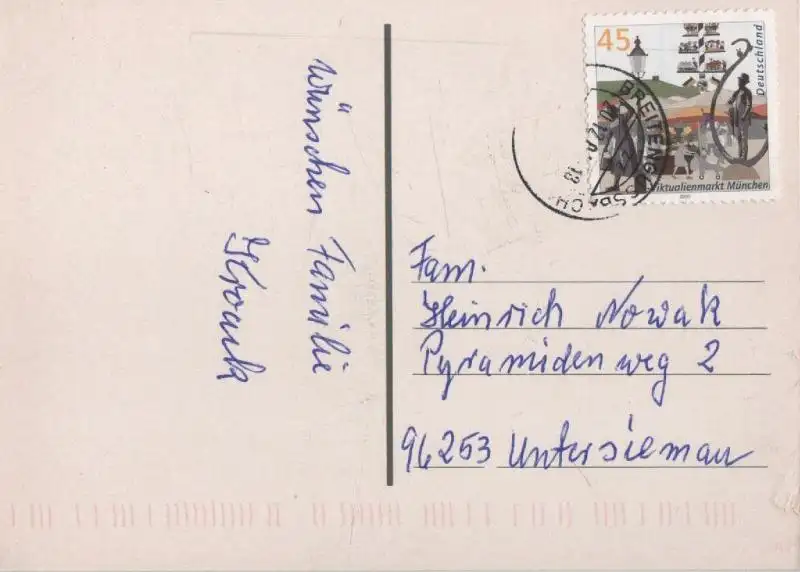 wünschen Familie
45
Deutschland
Viktualienmarkt München
Fam.
Heinrich Nowak
Pyramidenweg 2
96253 Untersiemau